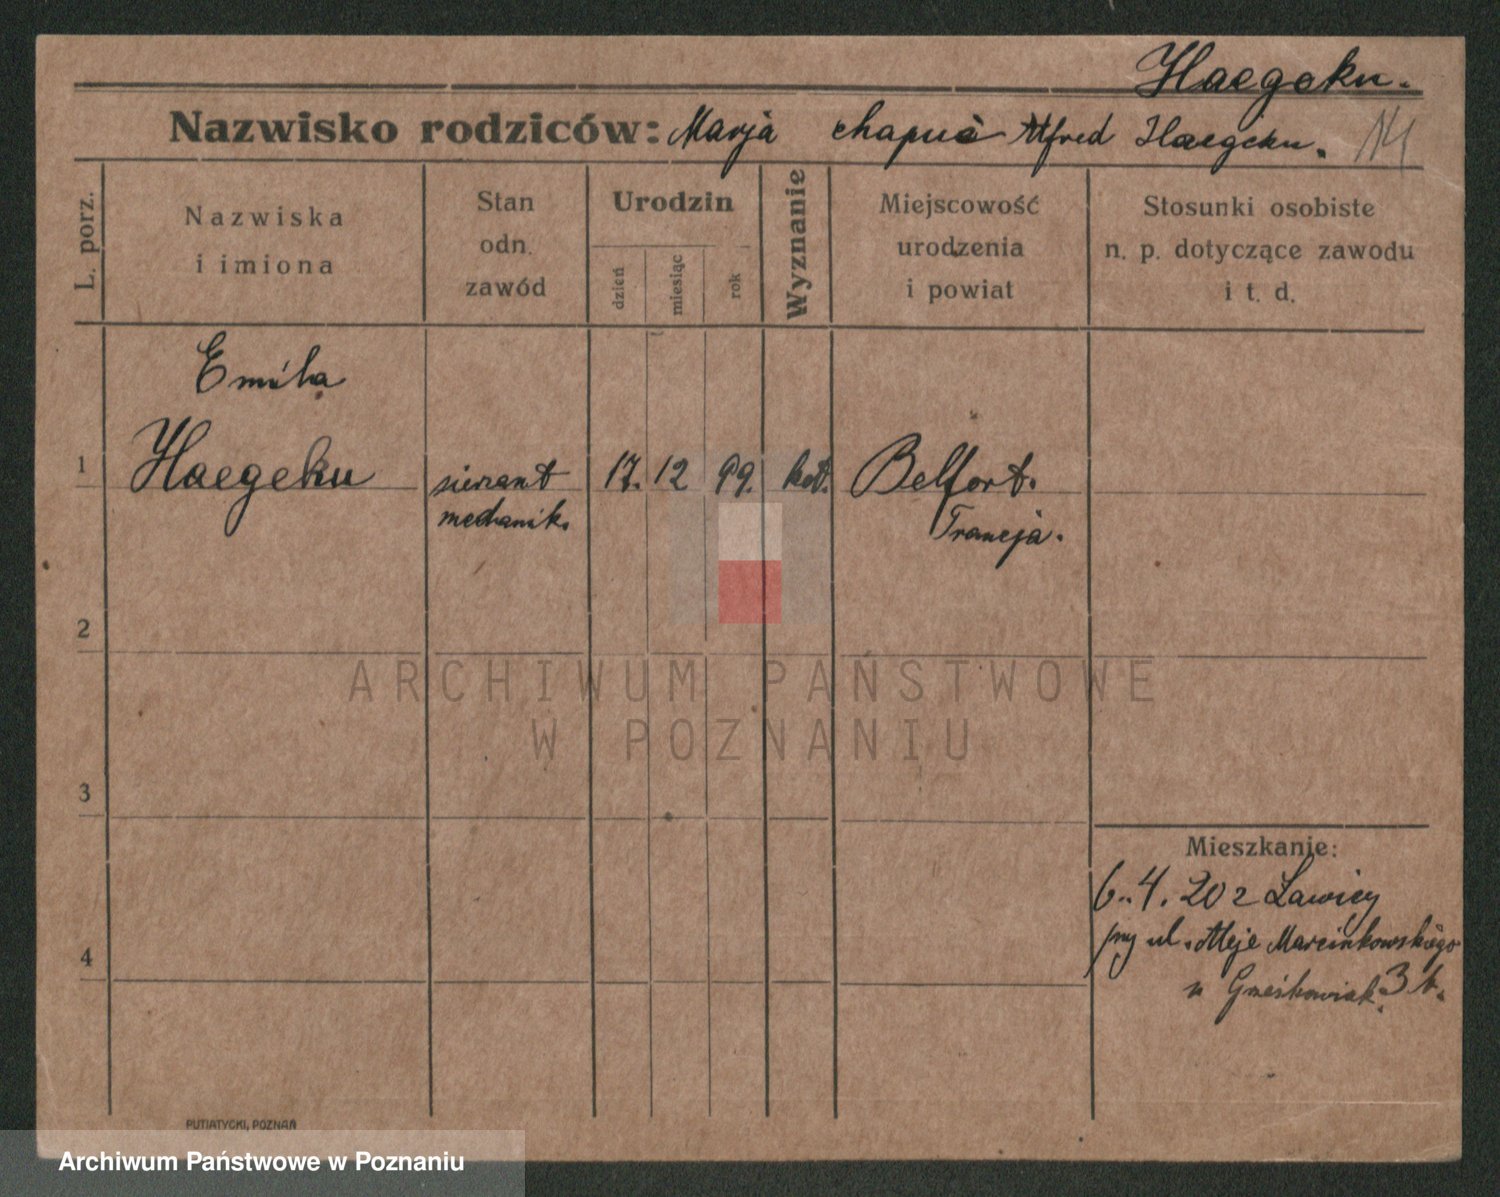 Haegeku.
Nazwisko rodziców: Marja chapuè Alfred Haegeku. 141
L. porz.
Nazwiska
i imiona
Stan
odn.
zawód
Urodzin
dzień
miesiąc
rok
Wyznanie
Miejscowość
urodzenia
i powiat
Stosunki osobiste
n. p. dotyczące zawodu
i t. d.
Emila
1 Haegeku sierzant 17. 12 99. kat. Belfort.
mechanik. Francja.
2
ARCHIWUM PAŃSTWOWE
W POZNANIU
3
Mieszkanie:
6.. 4. 20 z Lawicy
przy ul. Aleje Marcinkowskiego
4
u Grześkowiak. 3 t.
PUTIATYCKI, POZNAŃ
Archiwum Państwowe w Poznaniu